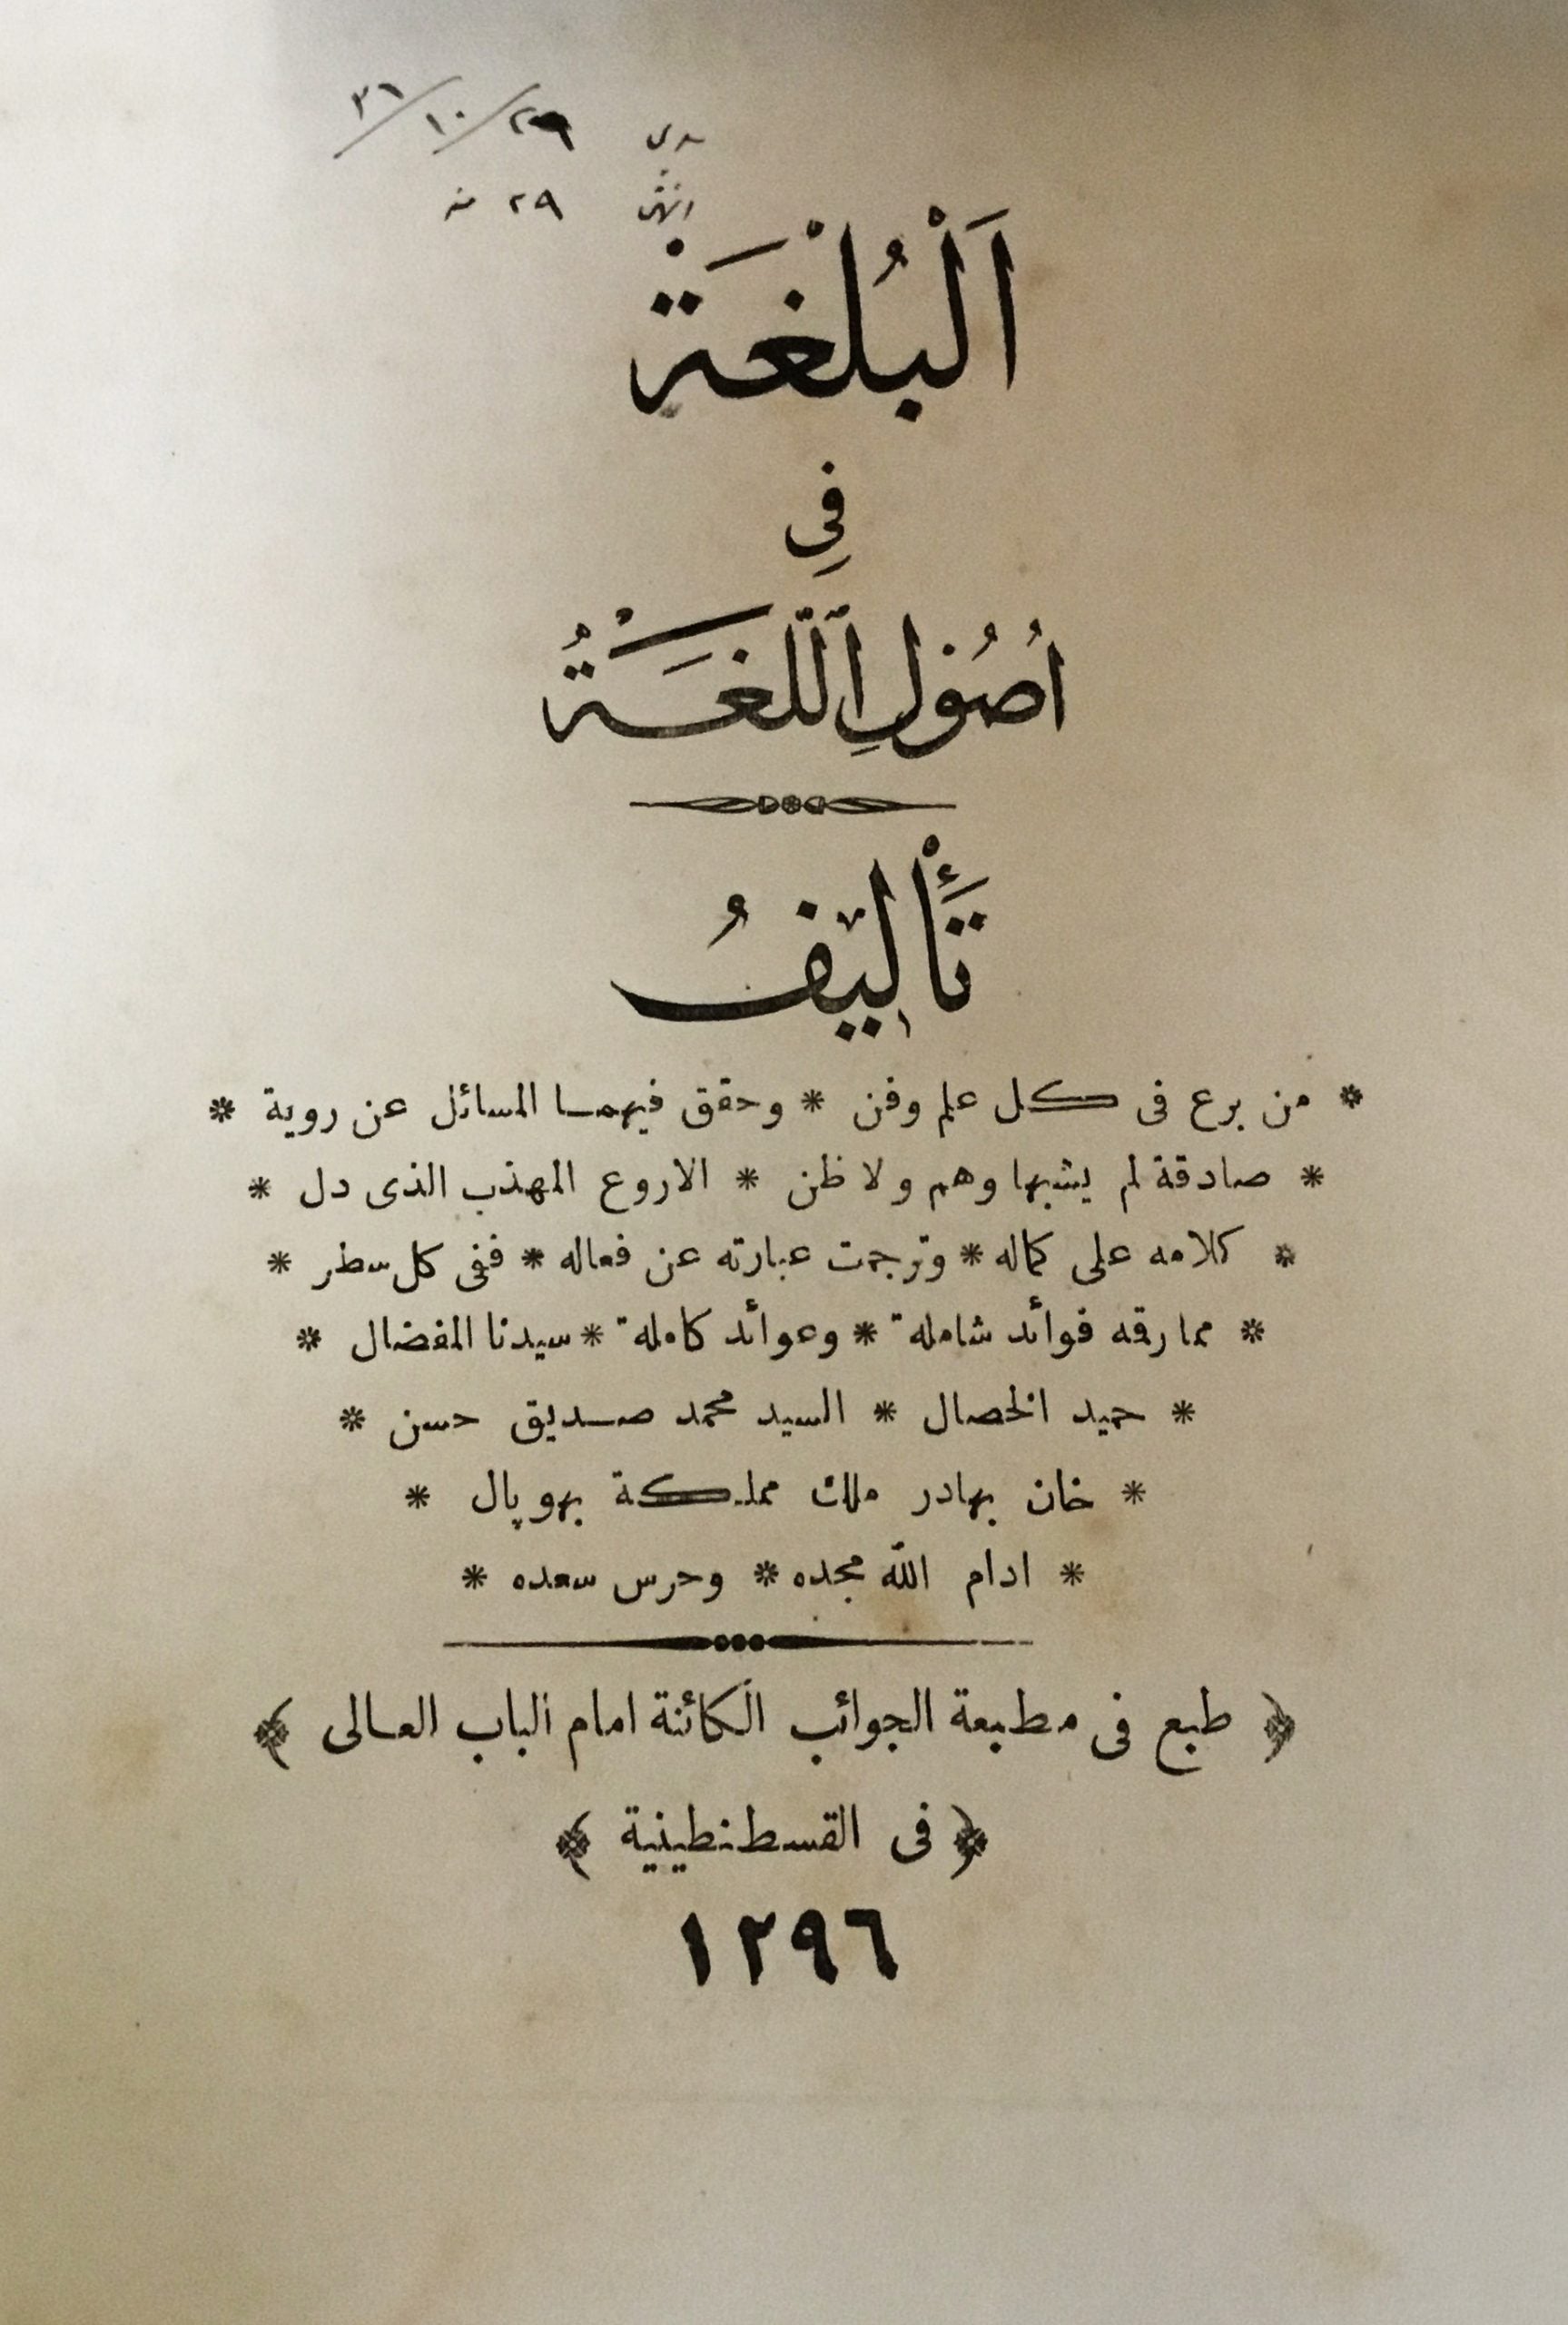 ٣١/١٠/٢٩
٢٩
اَلْبُلْغَةْ
فِي
اُصُوْلِ ٱللّغَةُ
تَأْلِيْفُ
* من برع فى كل علم وفن * وحقق فيهما المسائل عن روية *
* صادقة لم يشبها وهم ولا ظن * الاروع المهذب الذى دل *
* كلامه على كماله * وترجمت عبارته عن فعاله * ففى كل سطر *
* مما رقه فوائد شاملة * وعوائد كاملة * سيدنا المفضال *
* حميد الخصال * السيد محمد صديق حسن *
* خان بهادر ملك مملكة بهوپال *
* ادام الله مجده * وحرس سعده *
﴿ طبع فى مطبعة الجوائب الكائنة امام الباب العالى ﴾
﴿ فى القسطنطينية ﴾
١٢٩٦